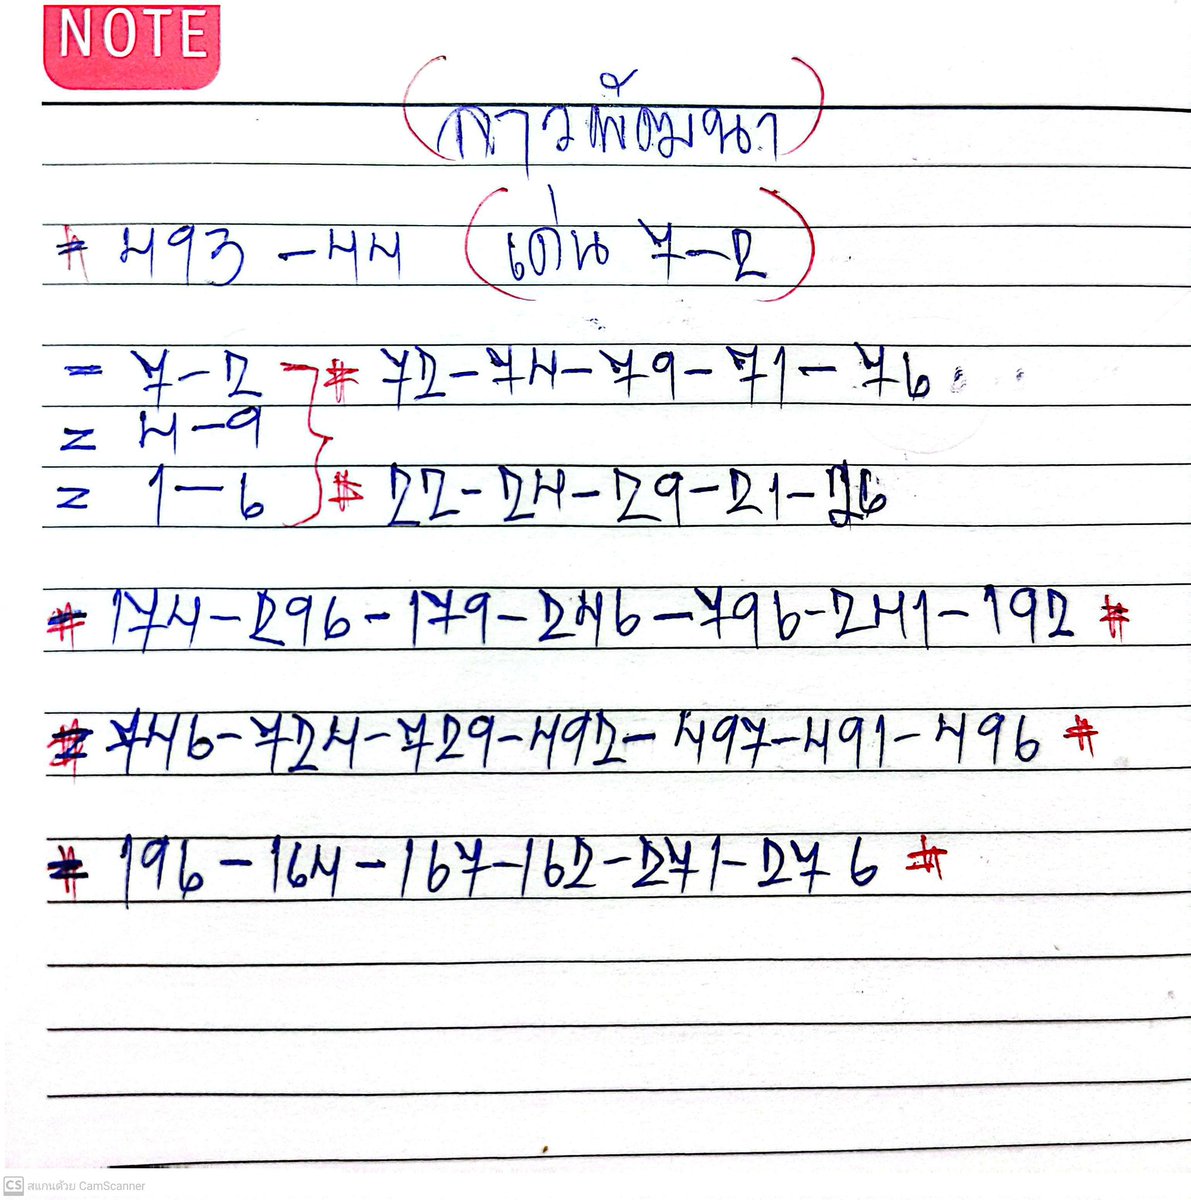 NOTE
(ลาวพัฒนา)
= 493 - 44 (เด่น 7-2)
= 7-2 # 72-74-79-71-76
= 4-9
= 1-6 # 22-24-29-21-26
# 174-296-179-246-796-241-192 #
# 746-724-729-492-497-491-496 #
# 196-164-167-162-271-276 #
CS สแกนด้วย CamScanner